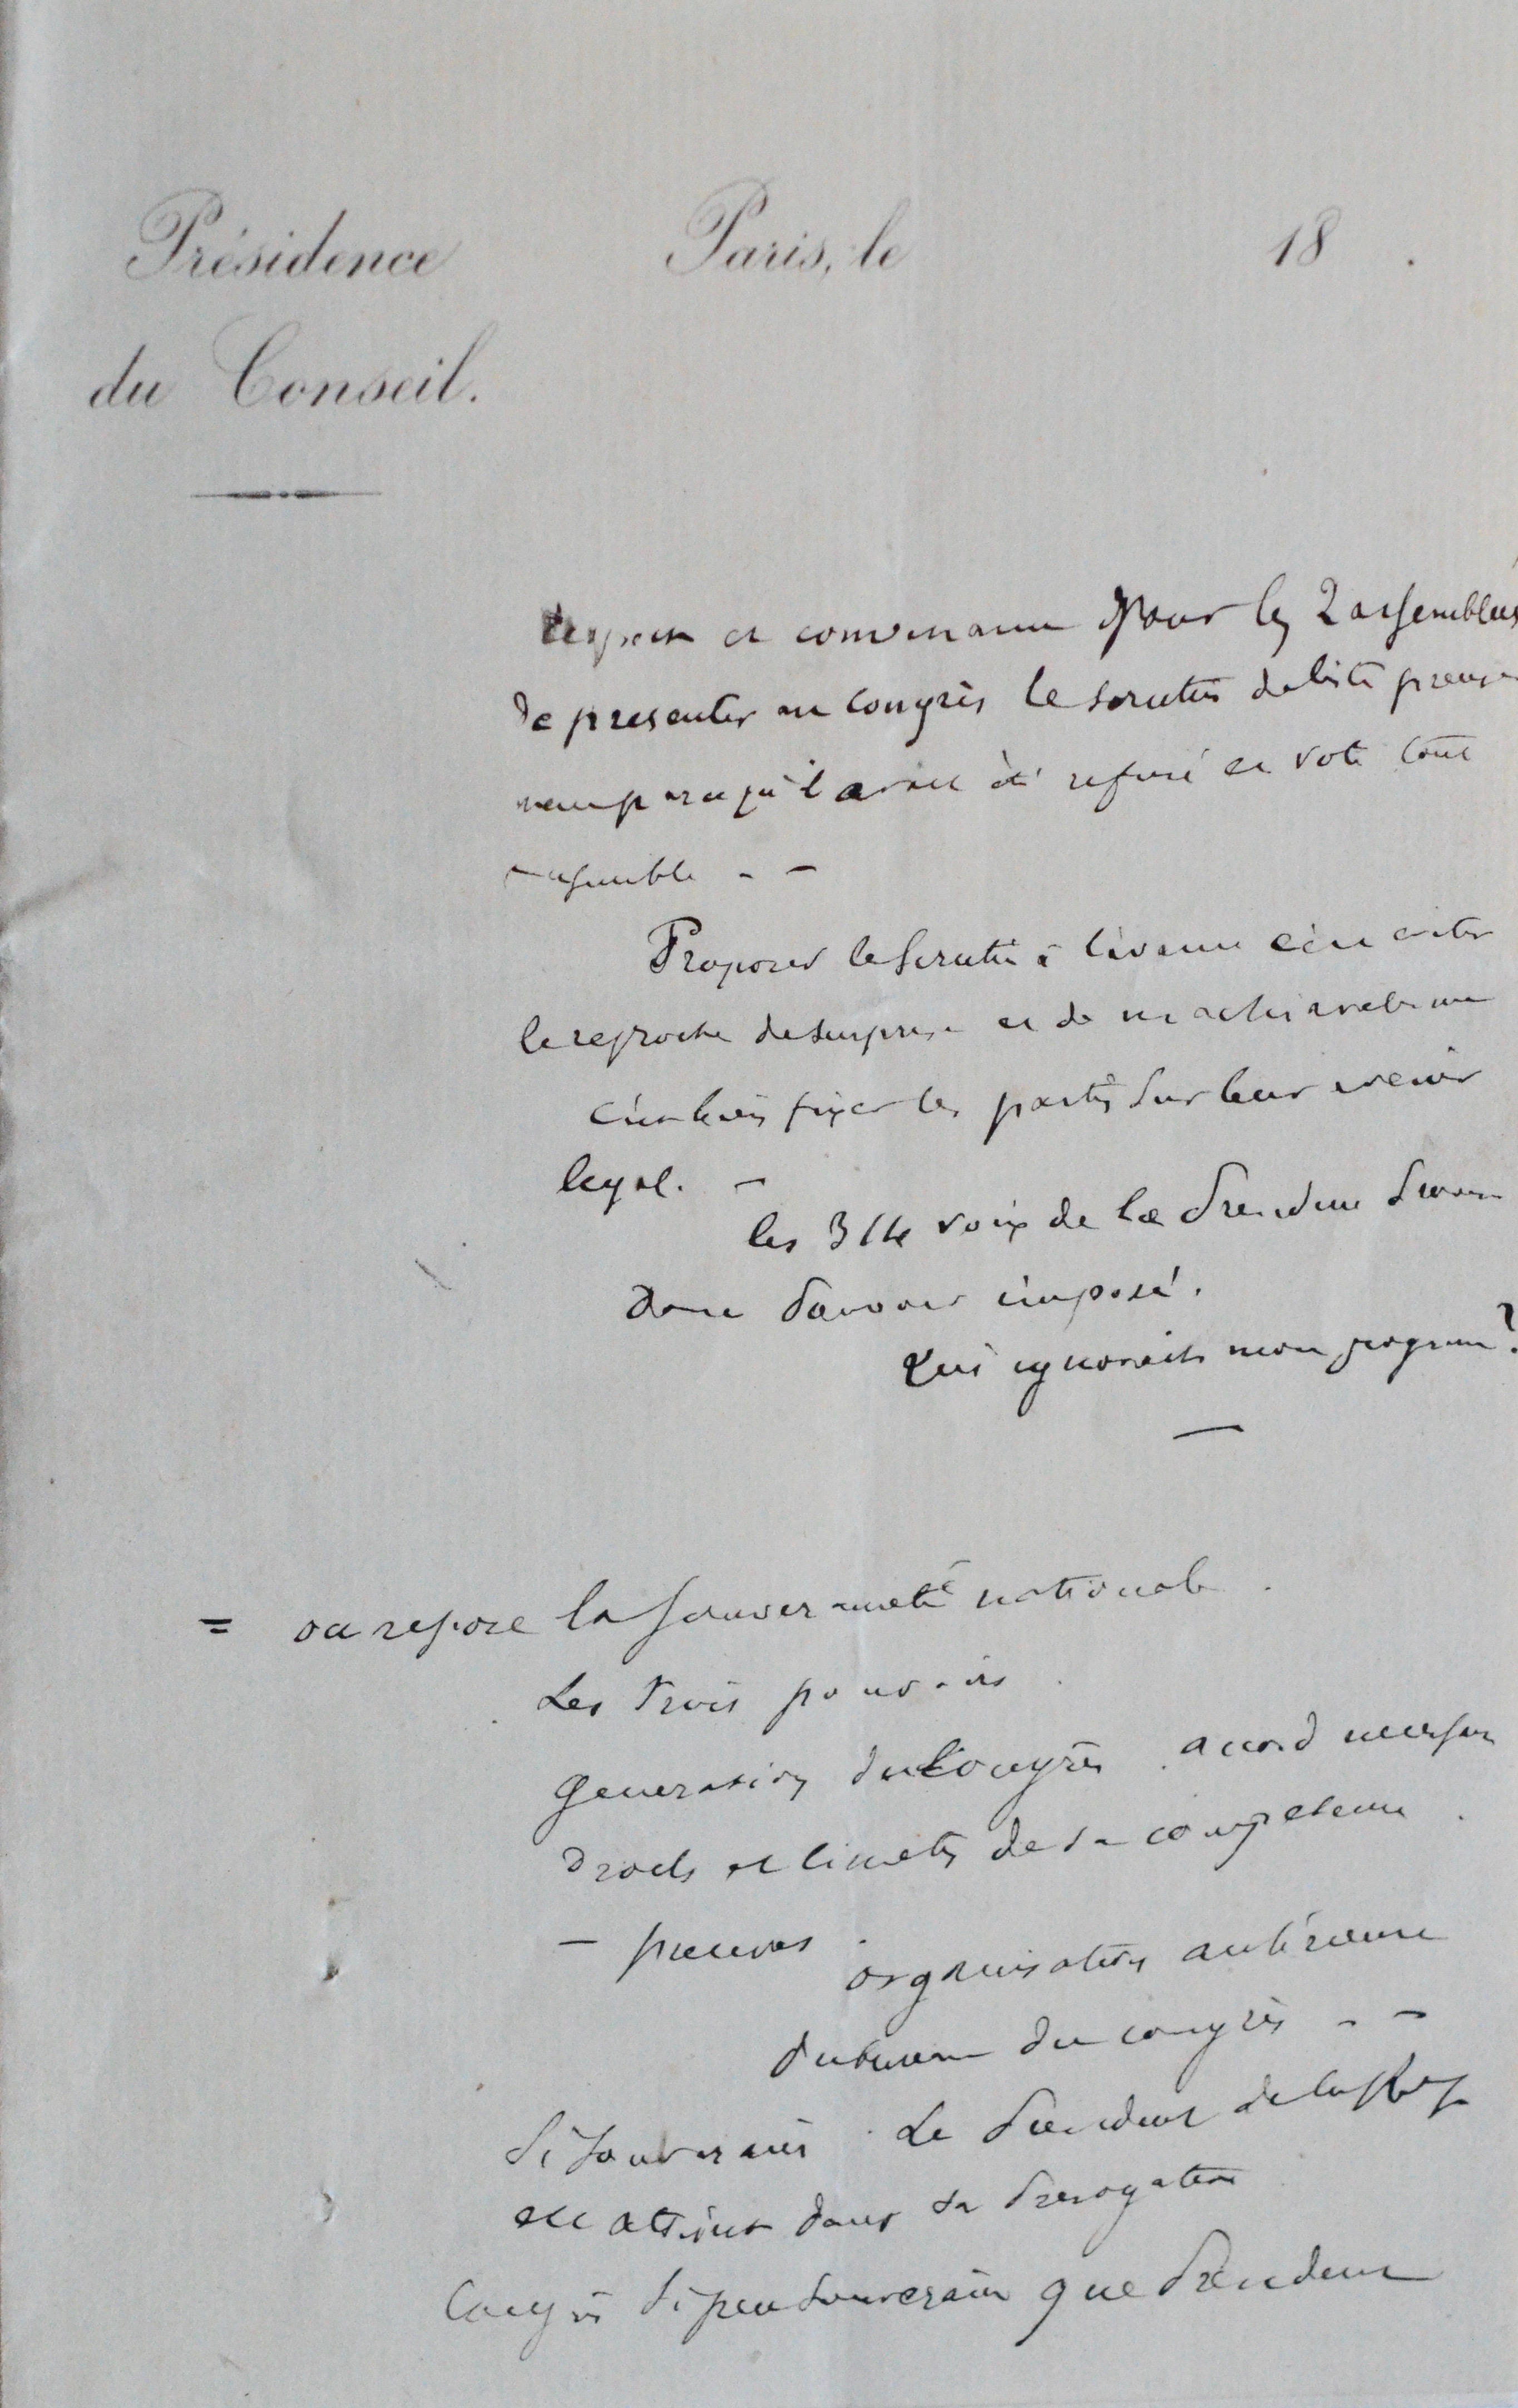 Présidence
du Conseil.
Paris, le 18 .
respect et convenance pour les 2 assemblées
de presenter au congrès le scrutin de liste
qu'il avait été refusé et voté tout
ensemble - -
Proposer le scrutin à l'avance c'est eviter
le reproche de surprise et de machiavelisme
c'est bien fixer les partis sur leur avenir
legal. -
les 314 voix de la
donc
qui ignorait mon program ?
—
= ou repose la souveraineté nationale .
Les trois pouvoirs .
generation du Congrès . accord necessaire
Droits et limites de sa competence .
- preuves . organisation antérieure
du bureau du congrès - -
Si souverain . Le President de la Rep
est atteint dans sa Prerogative
Congrès si peu souverain que President